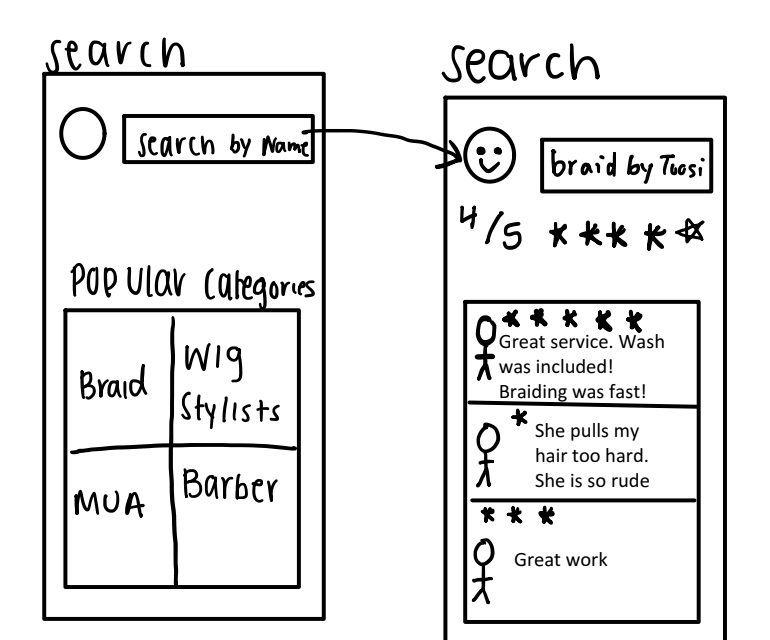 search
search by Name
Popular Categories
Braid
Wig
Stylists
MUA
Barber
search
braid by Tuosi
4/5
Great service. Wash
was included!
Braiding was fast!
She pulls my
hair too hard.
She is so rude
Great work